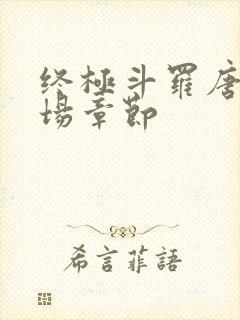 终極斗羅唐
場章節
希言菲語